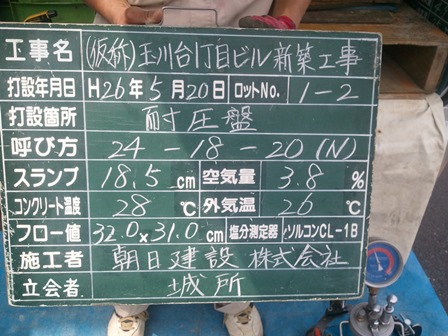 工事名 (仮称)玉川台1丁目ビル新築工事
打設年月日 H26年5月20日 ロットNo. 1-2
打設箇所 耐圧盤
呼び方 24-18-20(N)
スランプ 18.5cm 空気量 3.8%
コンクリート温度 28℃ 外気温 26℃
フロー値 32.0×31.0cm 塩分測定器 ソルコンCL-1B
施工者 朝日建設株式会社
立会者 城所